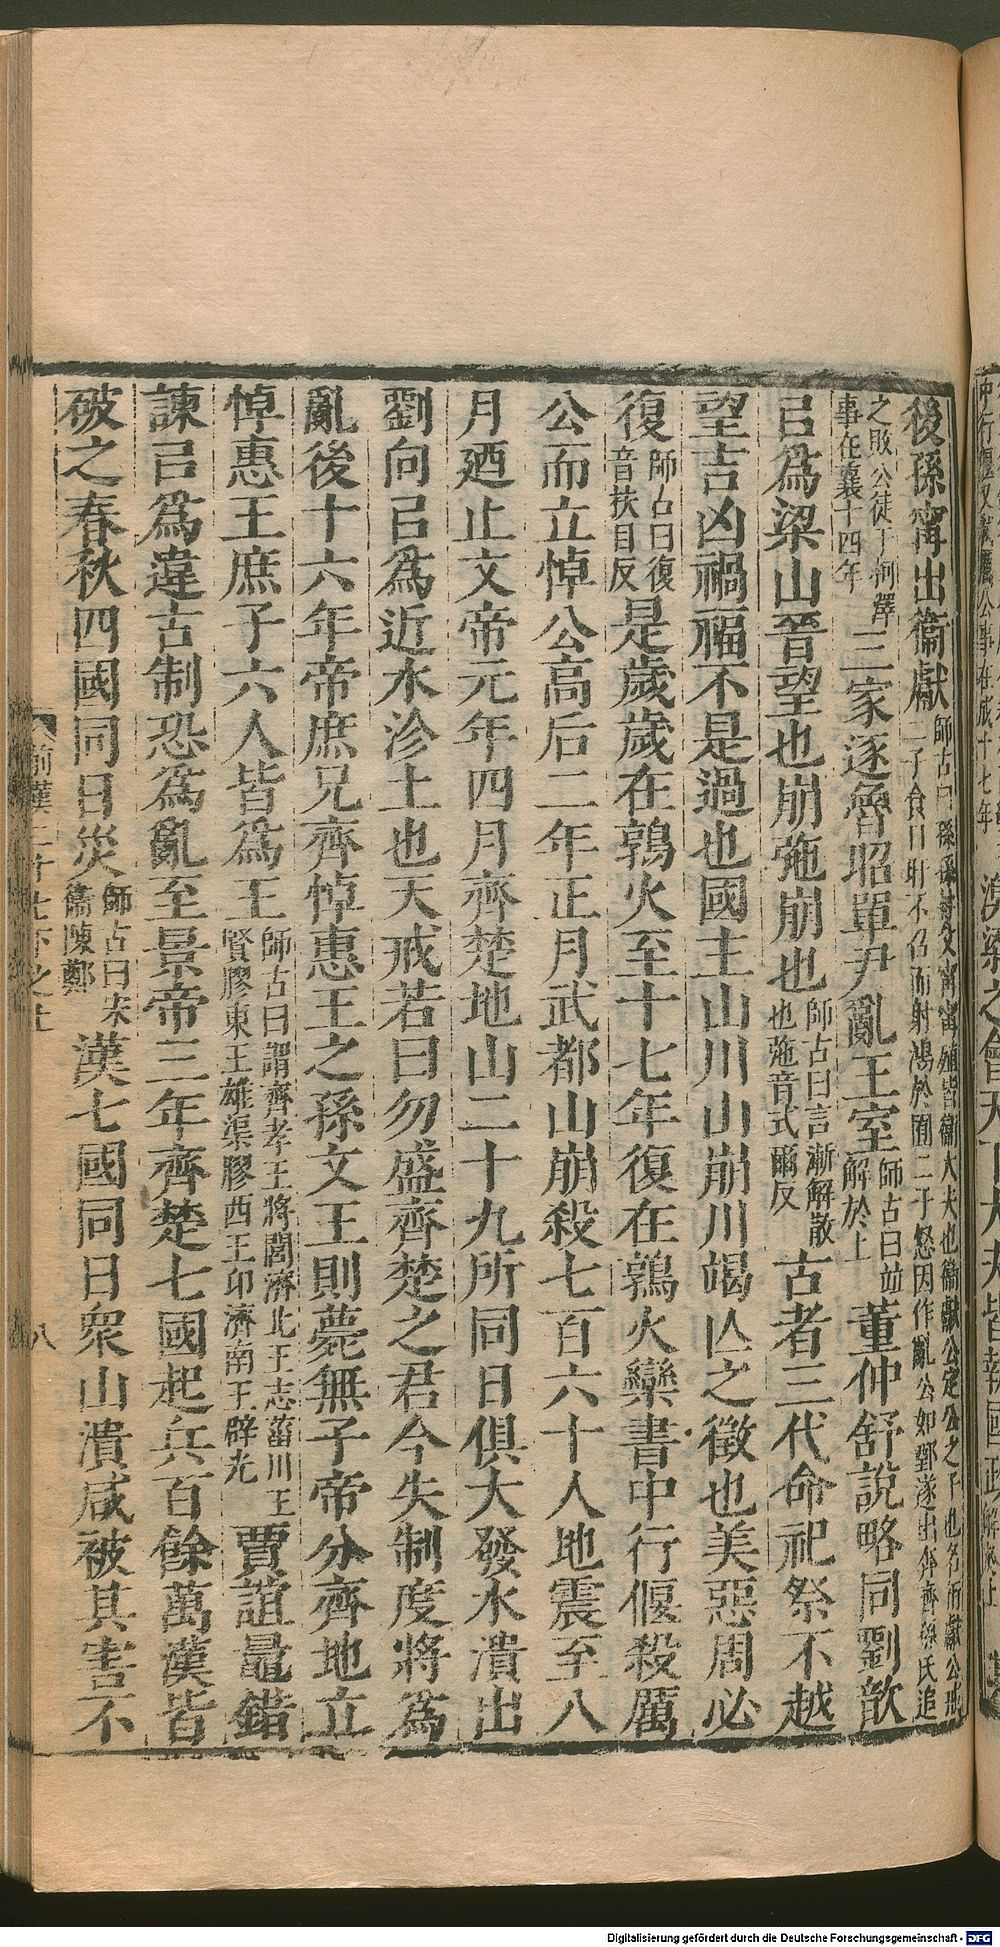 後孫甯出衞獻師古曰孫孫林父甯甯殖皆衞大夫也衞獻公定公之子也名衎獻公戒二子食日旰不召而射鴻於囿二子怒因作亂公如鄄遂出奔齊孫氏追
之敗公徒于柯澤事在襄十四年三家逐魯昭單尹亂王室師古曰並解於上董仲舒說略同劉歆
㠯爲梁山晉望也崩弛崩也師古曰言漸解散也弛音式爾反古者三代命祀祭不越
望吉凶禍福不是過也國主山川山崩川竭亾之徵也美惡周必
復師古曰復音扶目反是歲歲在鶉火至十七年復在鶉火欒書中行偃殺厲
公而立悼公高后二年正月武都山崩殺七百六十人地震至八
月廼止文帝元年四月齊楚地山二十九所同日俱大發水潰出
劉向㠯爲近水沴土也天戒若曰勿盛齊楚之君今失制度將爲
亂後十六年帝庶兄齊悼惠王之孫文王則薨無子帝分齊地立
悼惠王庶子六人皆爲王師古曰謂齊孝王將閭濟北王志菑川王賢膠東王雄渠膠西王卬濟南王辟光賈誼鼂錯
諫㠯爲違古制恐爲亂至景帝三年齊楚七國起兵百餘萬漢皆
破之春秋四國同日災師古曰宋衞陳鄭漢七國同日衆山潰咸被其害不
八
Digitalisierung gefördert durch die Deutsche Forschungsgemeinschaft - DFG